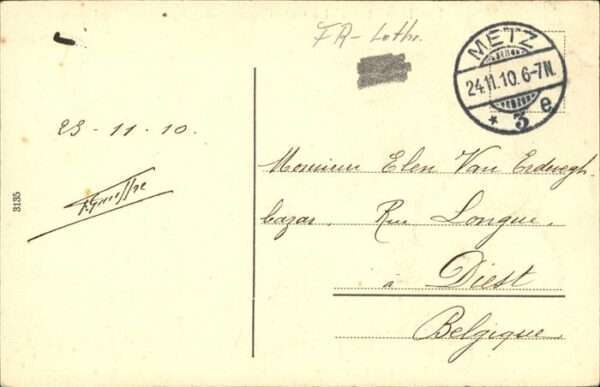 FR - Lothr.
METZ
24.11.10.6-7N.
* 3 e
23 - 11 - 10.
Monsieur Elen Van Erdwegh
bazar. Rue Longue.
à Diest
Belgique.
3135